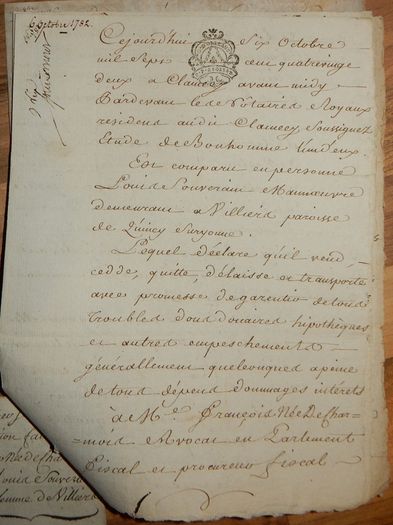 6 octobre 1782.
Cejourd'hui Six Octobre
mil Sept cent quatrevingt
deux a Clamecy avant midy
Pardevant les Notaires Royaux
résident audit Clamecy Soussignez
Etude de Bonhomme L'un d'eux.
Est comparu en personne
Louis de Souverain Manoeuvre
demeurant a Villiers paroisse
de Quincy Suryonne.
Lequel déclare qu'il vend
cedde, quitte, délaisse et transporte
avec promesse de garentir de tous
Troubles dons douaires hipothèques
et autres empeschements
généralement quelconques a peine
de tous dépens dommages intérêts
a M.e François Née De Char-
mois Avocat en Parlement
Fiscal et procureur fiscal